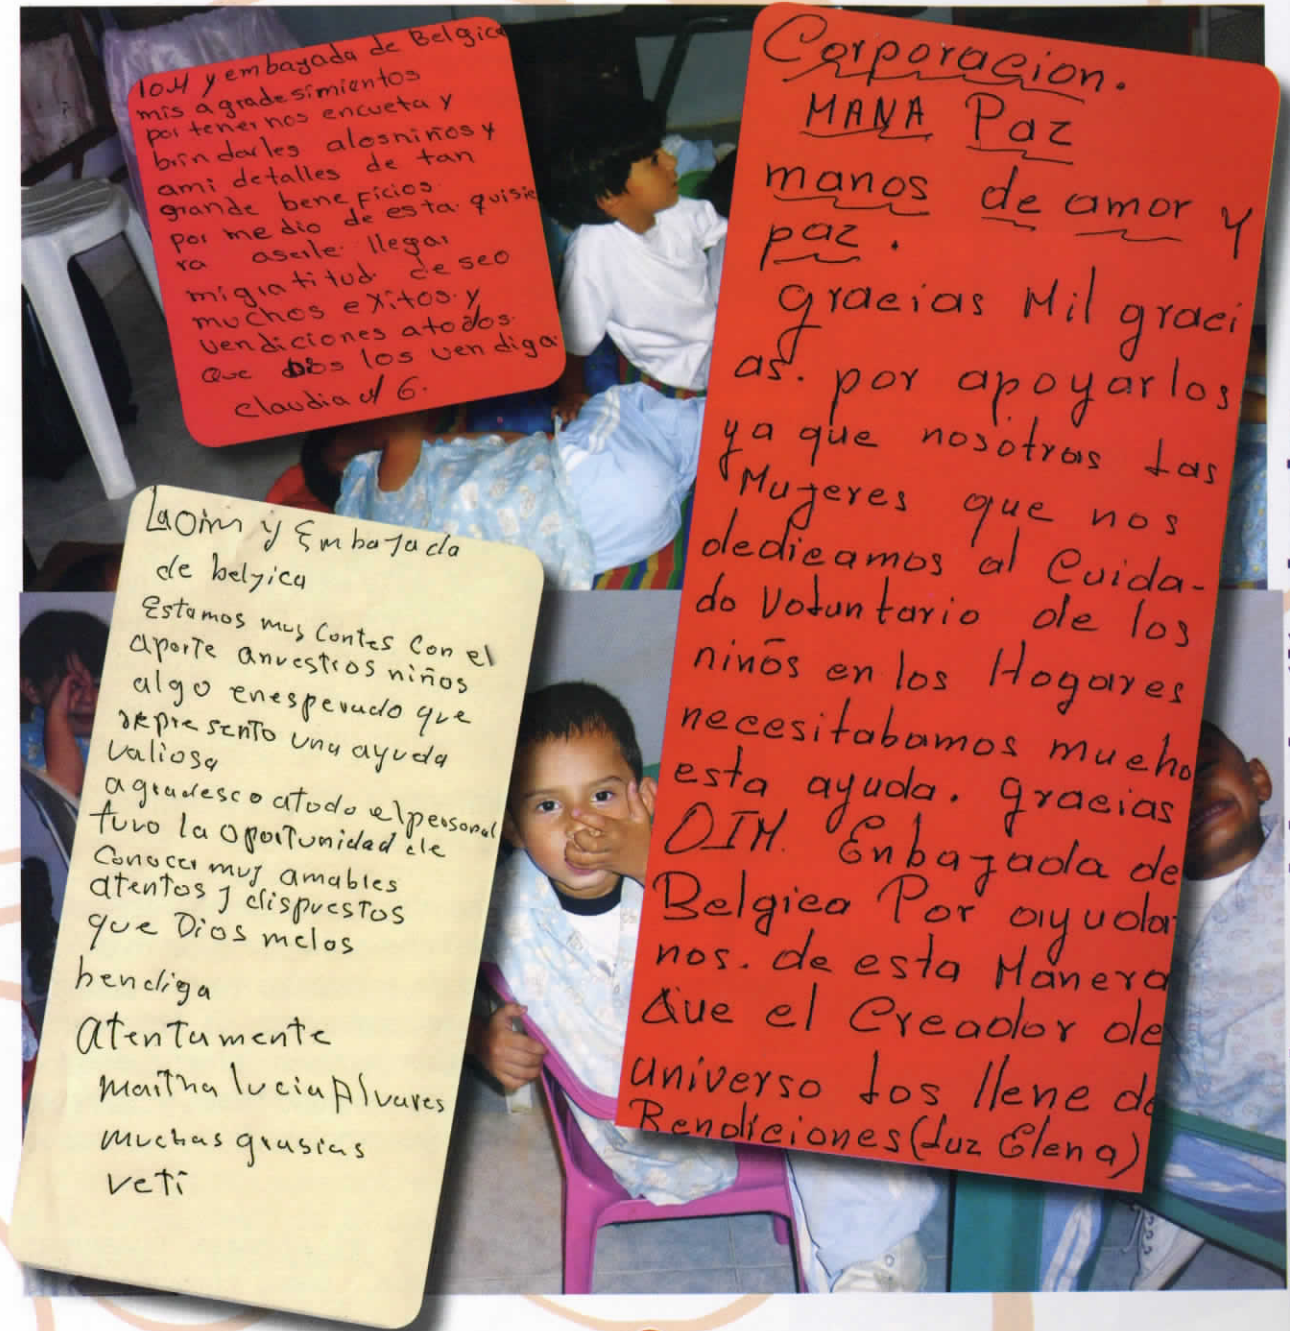 IOM y embajada de Belgica
mis agradesimientos
por tenernos encueta y
brindarles alosniños y
ami detalles de tan
grande beneficios
por medio de esta. quisie
ra aserle llegar
migratitud. deseo
muchos exitos. y
vendiciones atodos.
Que Dios los vendiga.
Claudia
Laoim y Embajada
de belgica
Estamos muy contes con el
aporte anuestros niños
algo enesperado que
represento una ayuda
valiosa
agradesco atodo elpersonal
tuvo la oportunidad de
conocer muy amables
atentos y dispuestos
que Dios melos
bendiga
Atentamente
martha lucia Alvares
muchas grasias
veti
Corporacion.
MANA Paz
manos de amor y
paz.
gracias Mil graci
as. por apoyarlos
ya que nosotras las
Mujeres que nos
dedicamos al Cuida-
do Voluntario de los
niños en los Hogares
necesitabamos mucho
esta ayuda. gracias
OIM. Enbajada de
Belgica Por ayuda
nos. de esta Manera
Que el Creador de
universo los llene de
Bendiciones (Luz Elena)